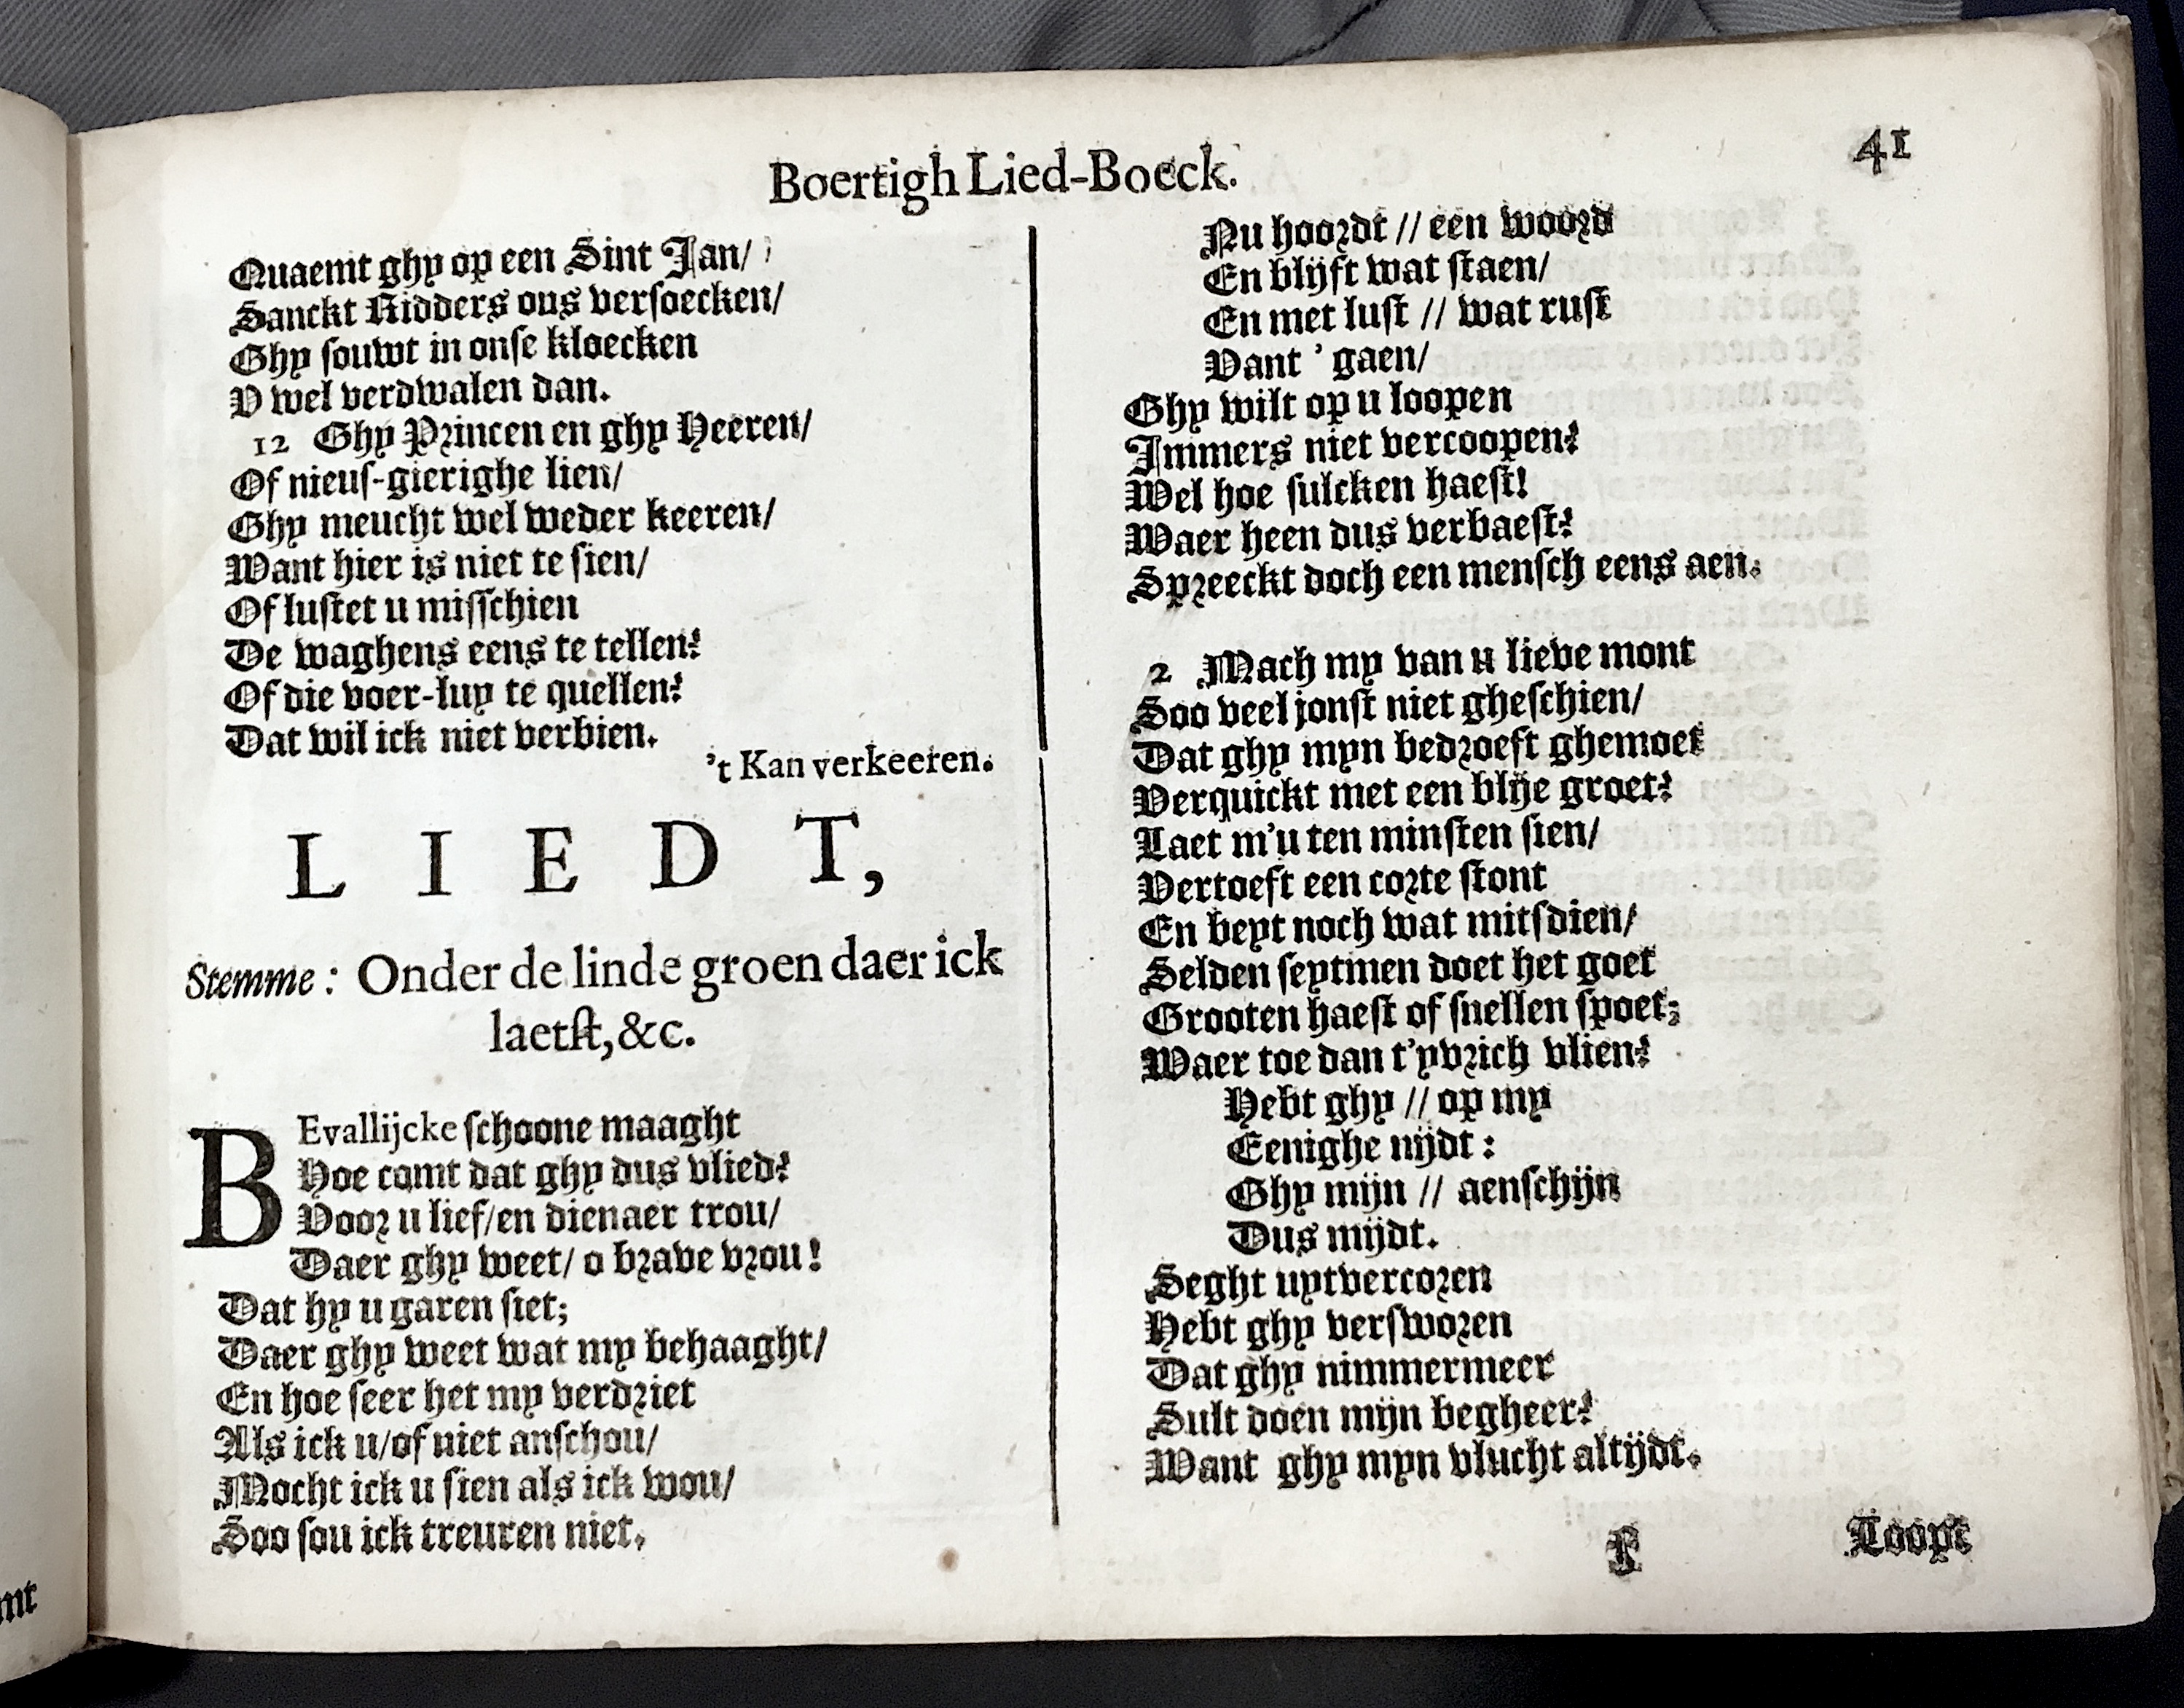 Boertigh Lied-Boeck.
41
Quaemt ghy op een Sint Jan/
Sanckt Ridders ons versoecken/
Ghy souwt in onse kloecken
V wel verdwalen dan.
12 Ghy Princen en ghy Heeren/
Of nieus-gierighe lien/
Ghy meucht wel weder keeren/
Want hier is niet te sien/
Of lustet u misschien
De waghens eens te tellen?
Of die voer-luy te quellen?
Dat wil ick niet verbien.
't Kan verkeeren.
LIEDT,
Stemme: Onder de linde groen daer ick
laetst, &c.
BEvallijcke schoone maaght
Hoe comt dat ghy dus vlied?
Voor u lief/en dienaer trou/
Daer ghy weet/ o brave vrou!
Dat hy u garen siet;
Daer ghy weet wat my behaaght/
En hoe seer het my verdriet
Als ick u/of niet anschou/
Mocht ick u sien als ick wou/
Soo sou ick treuren niet.
Nu hoordt // een woord
En blijft wat staen/
En met lust // wat rust
Vant ' gaen/
Ghy wilt op u loopen
Immers niet vercoopen?
Wel hoe sulcken haest!
Waer heen dus verbaest?
Spreeckt doch een mensch eens aen.
2 Mach my van u lieve mont
Soo veel jonst niet gheschien/
Dat ghy myn bedroeft ghemoet
Verquickt met een blije groet?
Laet m'u ten minsten sien/
Vertoeft een corte stont
En beyt noch wat mitsdien/
Selden seytmen doet het goet
Grooten haest of snellen spoet;
Waer toe dan t'yvrich vlien?
Hebt ghy // op my
Eenighe nijdt:
Ghy mijn // aenschijn
Dus mijdt.
Seght uytvercoren
Hebt ghy versworen
Dat ghy nimmermeer
Sult doen mijn begheer?
Want ghy myn vlucht altijdt.
F
Loopt
mt